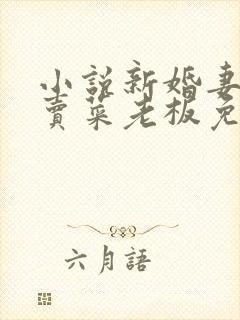 小説新婚妻
賣菜老板免
六月語